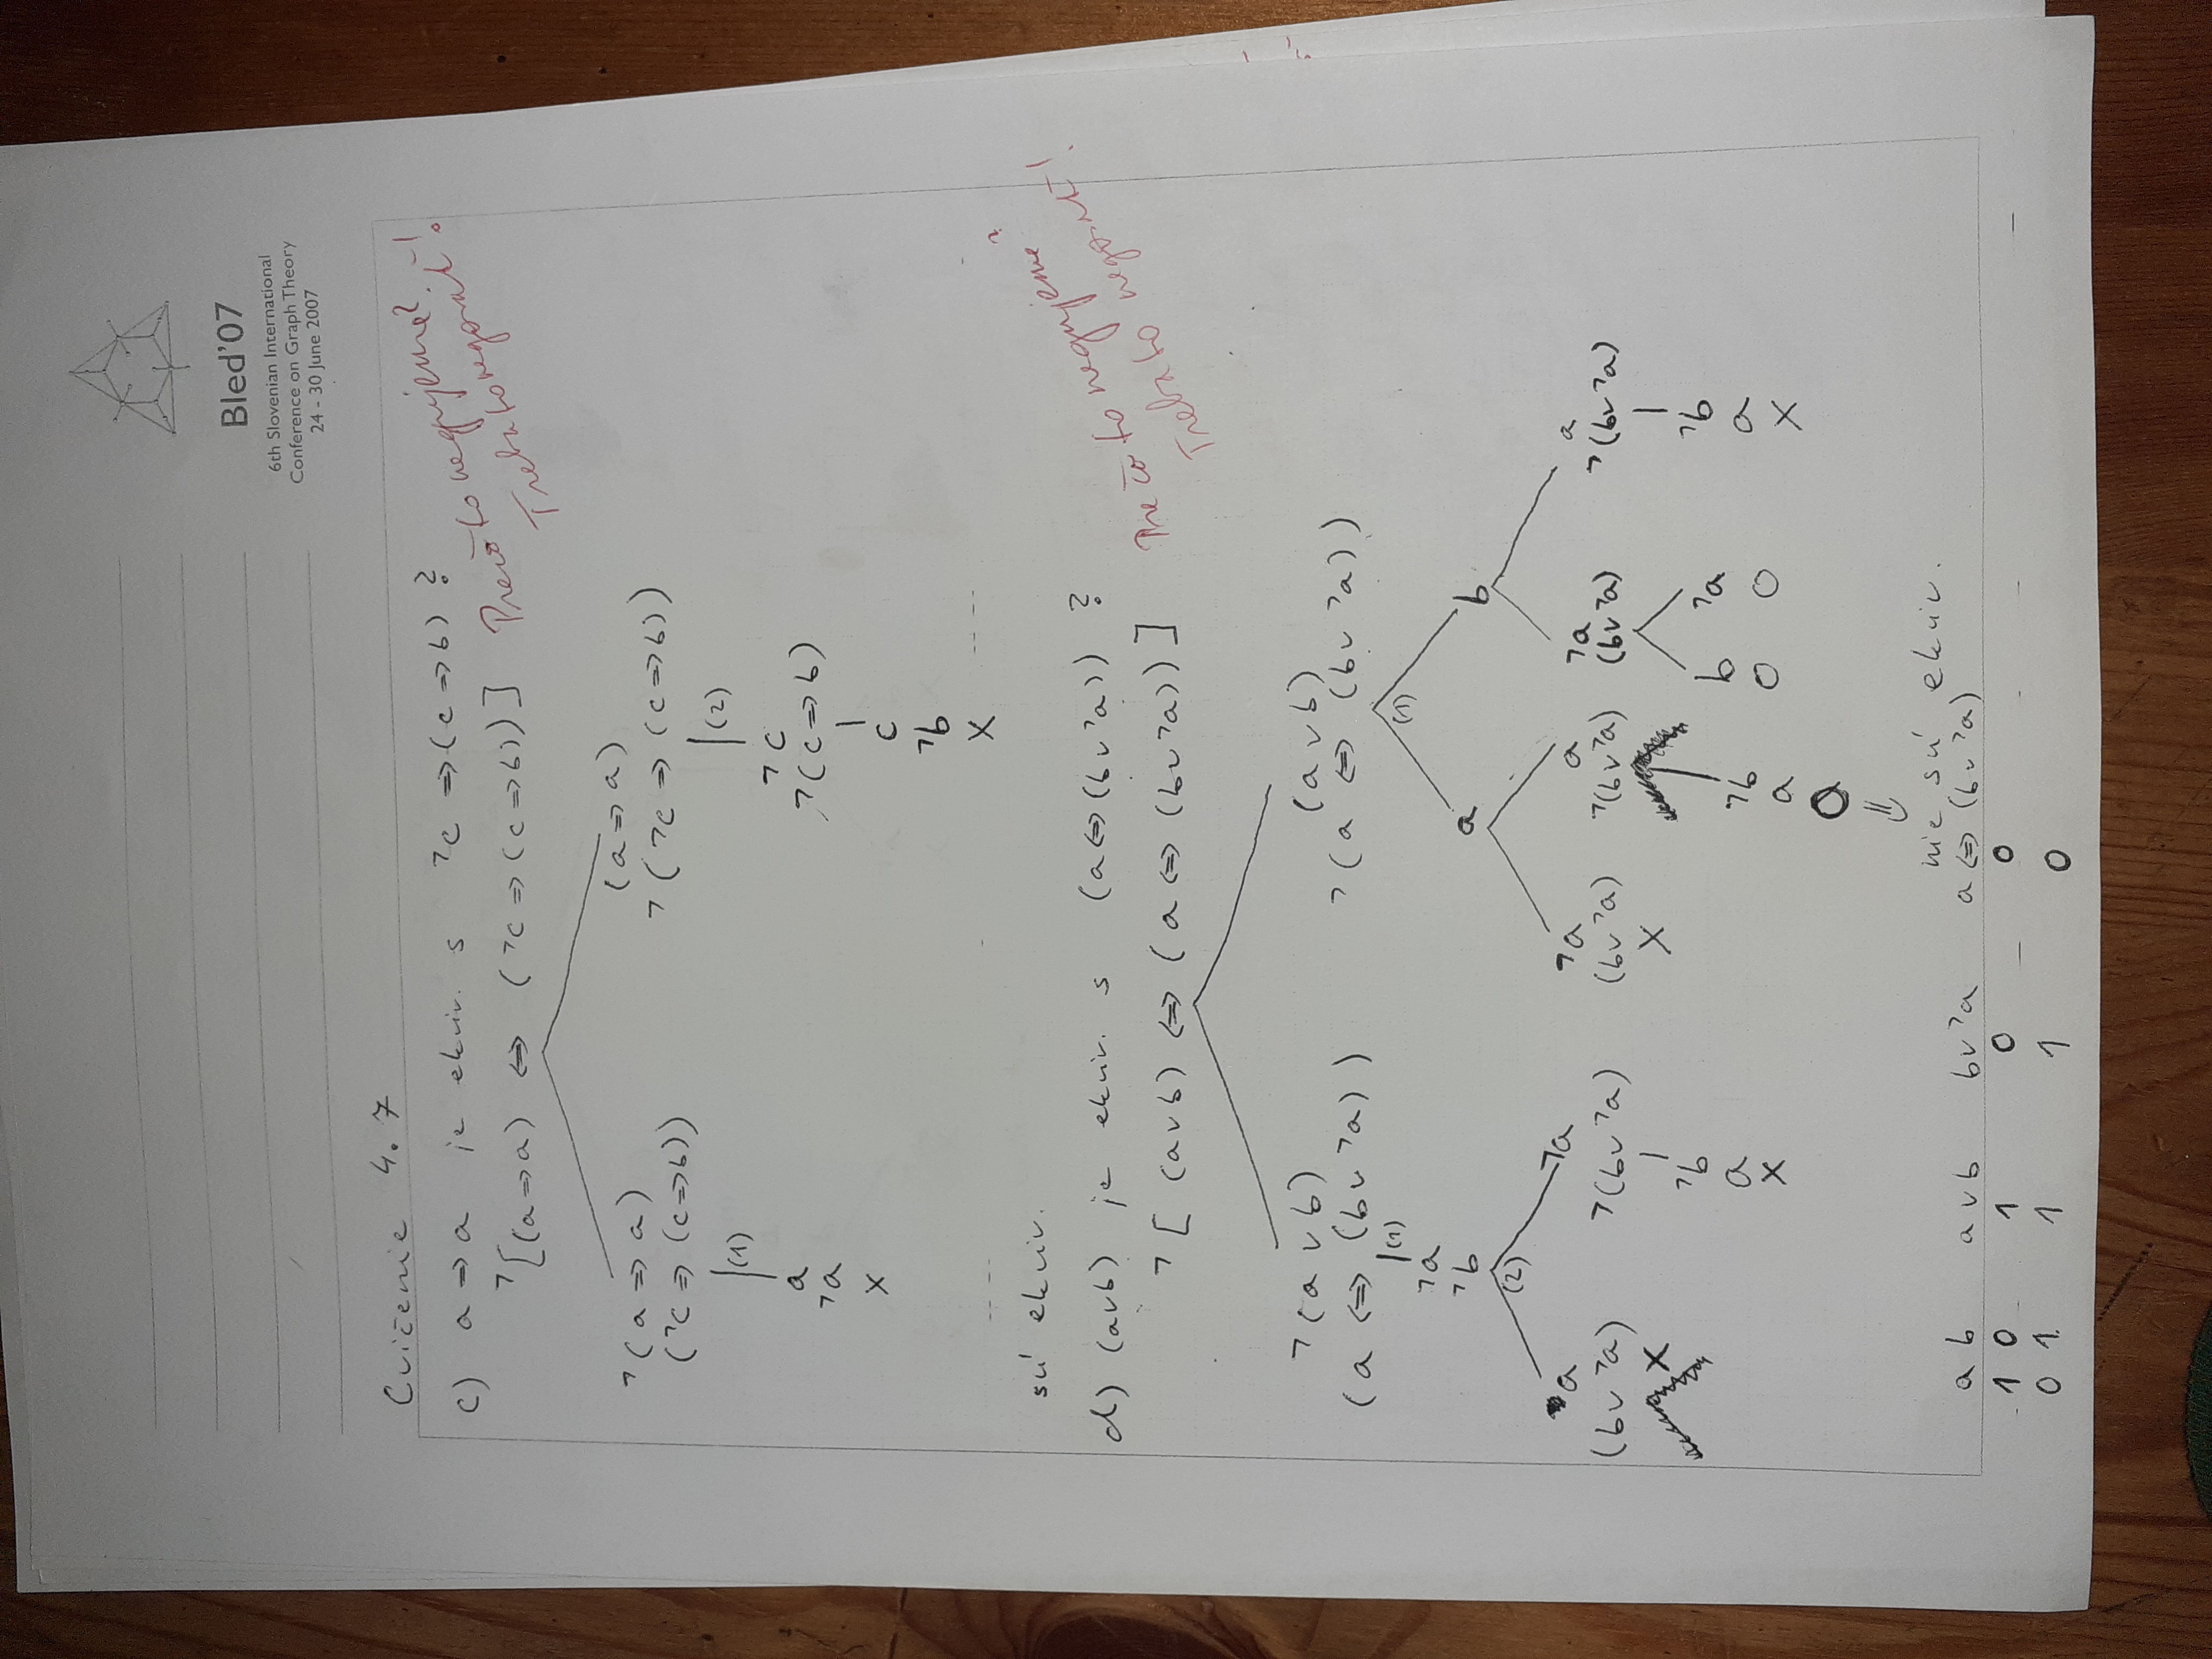 Bled'07
6th Slovenian International
Conference on Graph Theory
24 - 30 June 2007
Cvičenie 4.7
c) a ⇒ a je ekviv. s ¬c ⇒ (c ⇒ b) ?
¬[(a ⇒ a) ⇔ (¬c ⇒ (c ⇒ b))]
Prečo to negujeme?
Treba to negovať!
¬(a ⇒ a) (a ⇒ a)
(¬c ⇒ (c ⇒ b)) ¬(¬c ⇒ (c ⇒ b))
(1) (2)
a ¬c
¬a ¬(c ⇒ b)
X c
¬b
X
sú ekviv.
d) (a∨b) je ekviv. s (a ⇔ (b∨¬a)) ?
¬[(a∨b) ⇔ (a ⇔ (b∨¬a))]
Prečo to negujeme?
Treba to negovať!
¬(a∨b) (a∨b)
(a ⇔ (b∨¬a)) ¬(a ⇔ (b∨¬a))
(1) (1)
¬a
¬b a b
(2)
a ¬a ¬a a ¬a a
(b∨¬a) ¬(b∨¬a) (b∨¬a) ¬(b∨¬a) (b∨¬a) ¬(b∨¬a)
X X
¬b ¬b b ¬a ¬b
a a O O a
X O X
⇓
nie sú ekviv.
a b a∨b b∨¬a a ⇔ (b∨¬a)
1 0 1 0 0
0 1 1 1 0